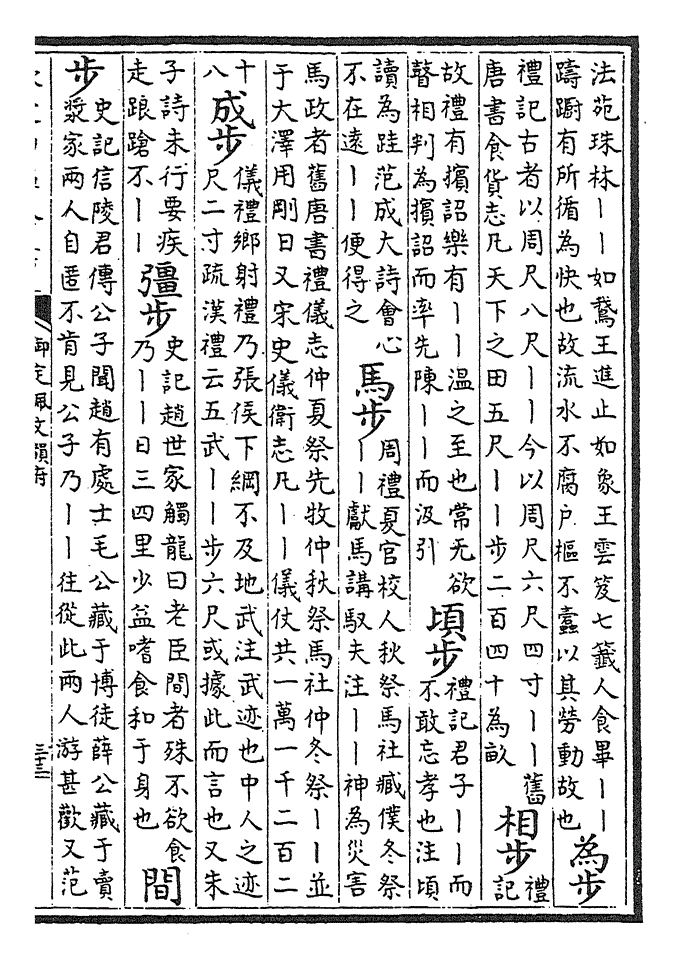 法苑珠林丨丨如鵝王進止如象王雲笈七籤人食畢丨丨
躊躅有所循為快也故流水不腐户樞不蠹以其勞動故也
為步
禮記古者以周尺八尺丨丨今以周尺六尺四寸丨丨舊
唐書食貨志凡天下之田五尺丨丨步二百四十為畝
相步
禮
記
故禮有擯詔樂有丨丨温之至也常无欲
瞽相判為擯詔而率先陳丨丨而汲引
頃步
禮記君子丨丨而
不敢忘孝也注頃
讀為跬范成大詩會心
不在遠丨丨便得之
馬步
周禮夏官校人秋祭馬社臧僕冬祭
丨丨獻馬講馭夫注丨丨神為災害
馬政者舊唐書禮儀志仲夏祭先牧仲秋祭馬社仲冬祭丨丨並
于大澤用剛日又宋史儀衛志凡丨丨儀仗共一萬一千二百二
十
八
成步
儀禮鄉射禮乃張侯下綱不及地武注武迹也中人之迹
尺二寸疏漢禮云五武丨丨步六尺或據此而言也又朱
子詩未行要疾
走踉蹌不丨丨
彊步
史記趙世家觸龍曰老臣間者殊不欲食
乃丨丨日三四里少益嗜食和于身也
間
步
史記信陵君傳公子聞趙有處士毛公藏于博徒薛公藏于賣
漿家兩人自匿不肯見公子乃丨丨往從此兩人游甚歡又范
御定佩文韻府